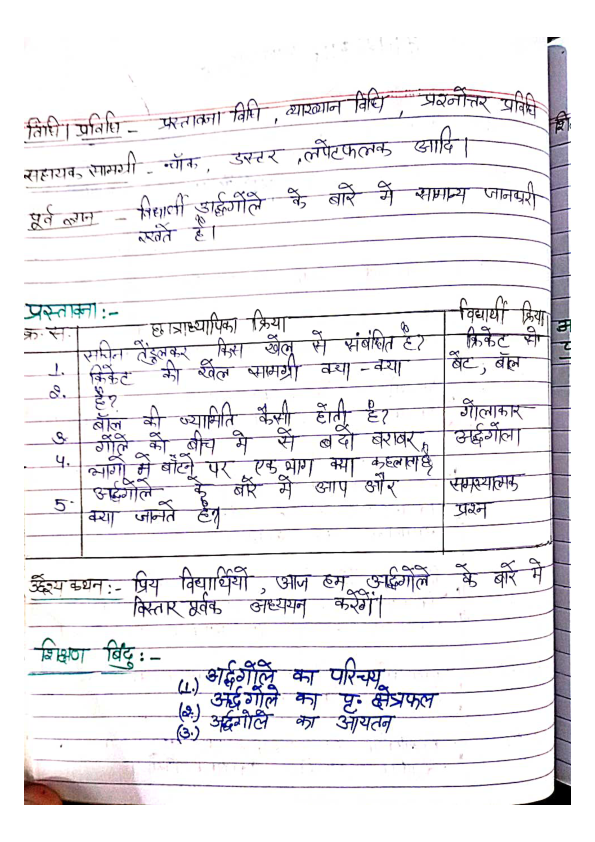 विधि। प्रविधि - प्रस्तावना विधि, व्याख्यान विधि, प्रश्नोत्तर प्रविधि
सहायक सामग्री - चॉक, डस्टर, लपेटफलक आदि।
पूर्व ज्ञान - विद्यार्थी अर्द्धगोले के बारे में सामान्य जानकारी
रखते हैं।
प्रस्तावना :-
क्र. स. छात्राध्यापिका क्रिया विद्यार्थी क्रिया
1. सचीन तेंदुलकर किस खेल से संबंधित है? क्रिकेट से
2. क्रिकेट की खेल सामग्री क्या - क्या बेट, बॉल
है?
3. बॉल की ज्यामिति कैसी होती है? गोलाकार
4. गोले को बीच मे से बदो बराबर अर्द्धगोला
भागो में बाँटने पर एक भाग क्या कहलाता है
5. अर्द्धगोले के बारे में आप और समस्यात्मक
क्या जानते है? प्रश्न
उद्देश्य कथन :- प्रिय विद्यार्थियों, आज हम अर्द्धगोले के बारे में
विस्तार पूर्वक अध्ययन करेंगें।
शिक्षण बिंदु :-
(1.) अर्द्धगोले का परिचय
(2.) अर्द्धगोले का पृ. क्षेत्रफल
(3.) अर्द्धगोले का आयतन